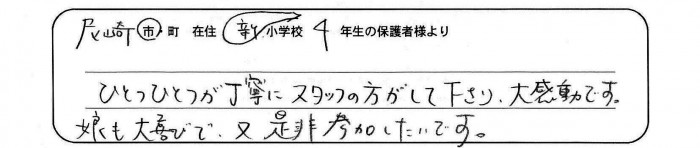 尼崎市・町 在住 小学校 4 年生の保護者様より
ひとつひとつが丁寧にスタッフの方がして下さり、大感動です。
娘も大喜びで、又是非参加したいです。